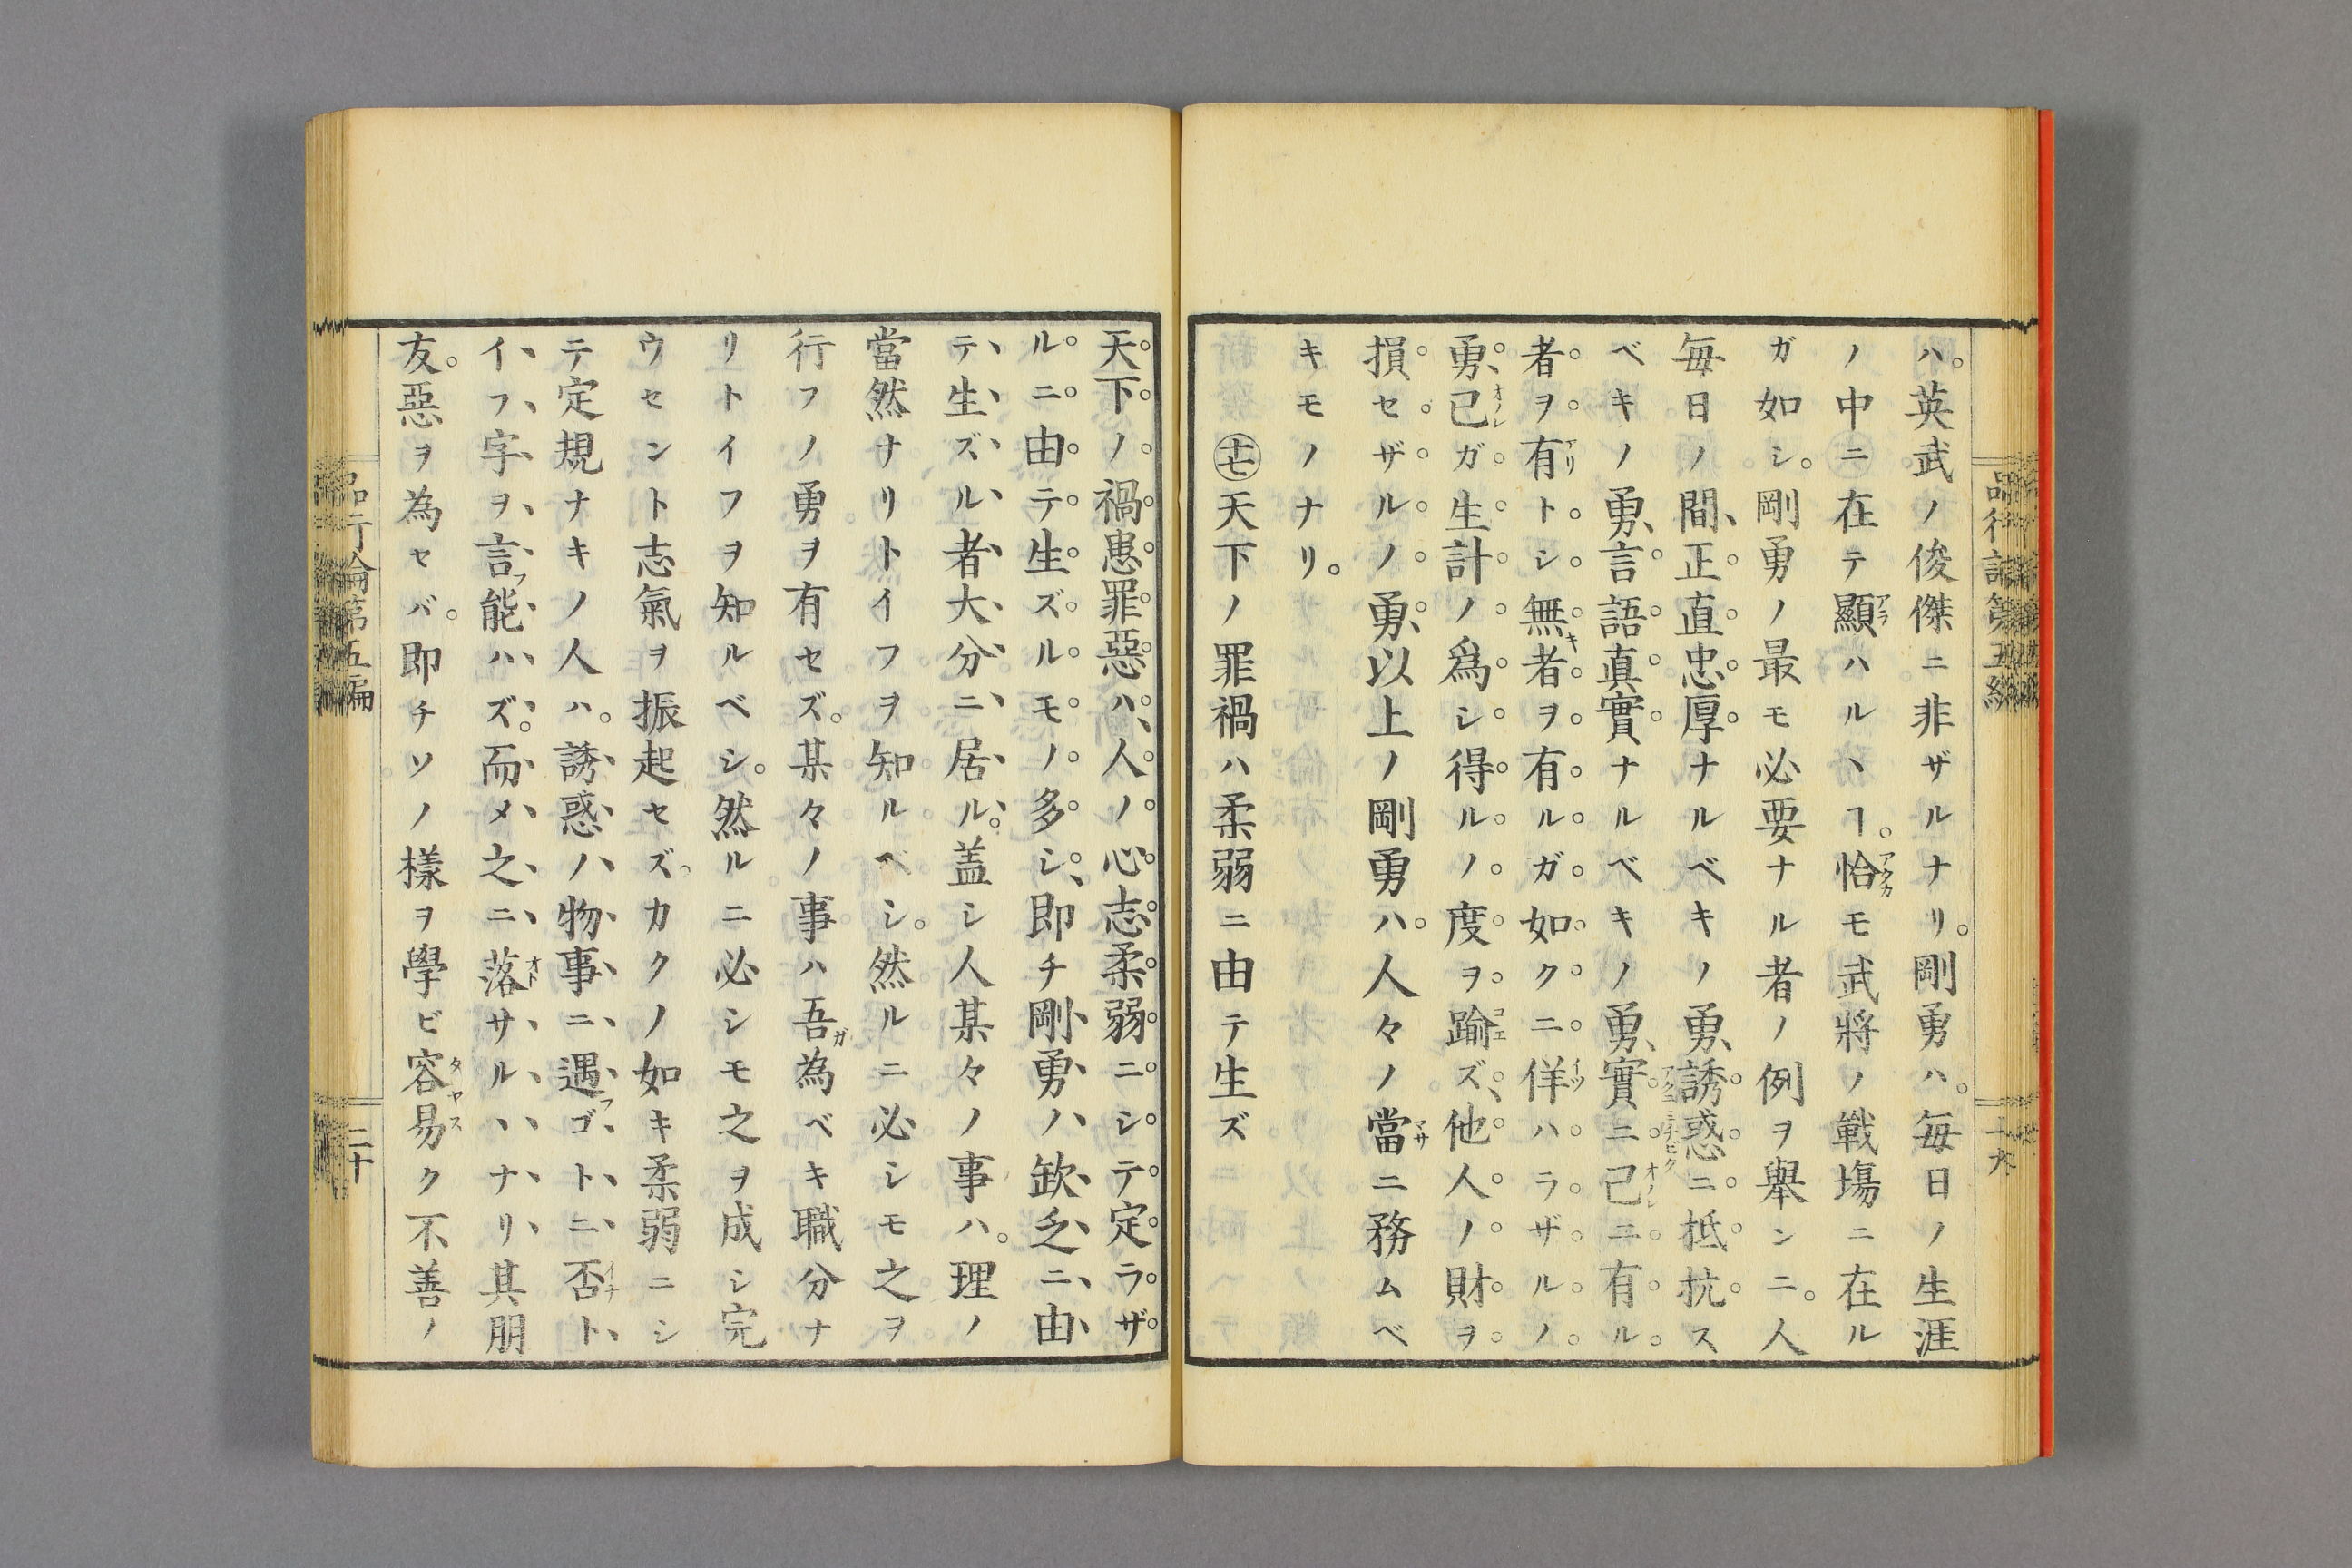 ハ。英武ノ俊傑ニ非ザルナリ。剛勇ハ。毎日ノ生涯
ノ中ニ在テ顯ハルヽヿ。恰モ武將ノ戰塲ニ在ル
ガ如シ。剛勇ノ最モ必要ナル者ノ例ヲ舉ンニ。人
毎日ノ間、正直忠厚ナルベキノ勇、誘惑ニ抵抗ス
ベキノ勇、言語真實ナルベキノ勇、實ニ己ニ有ル
者ヲ有トシ無者ヲ有ルガ如クニ佯ハラザルノ
勇、己ガ生計ノ爲シ得ルノ度ヲ踰ズ、他人ノ財ヲ
損セザルノ勇、以上ノ剛勇ハ。人々ノ當ニ務ムベ
キモノナリ。
㊆天下ノ罪禍ハ柔弱ニ由テ生ズ
天下ノ禍患罪惡ハ、人ノ心志柔弱ニシテ定ラザ
ルニ由テ生ズルモノ多シ、即チ剛勇ハ欽乏ニ由
テ生ズル者大分ニ居ル。盖シ人某々ノ事ハ。理ノ
當然ナリトイフヲ知ルベシ。然ルニ必シモ之ヲ
行フノ勇ヲ有セズ。某々ノ事ハ吾為ベキ職分ナ
リトイフヲ知ルベシ。然ルニ必シモ之ヲ成シ完
ウセント志氣ヲ振起セズ。カクノ如キ柔弱ニシ
テ定規ナキノ人ハ。誘惑ノ物事ニ遇ゴトニ否ト
イフ字ヲ言能ハズ。而メ之ニ落サルヽナリ其朋
友。惡ヲ為セバ。即チソノ樣ヲ學ビ容易ク不善ノ
品行論第五編
二十